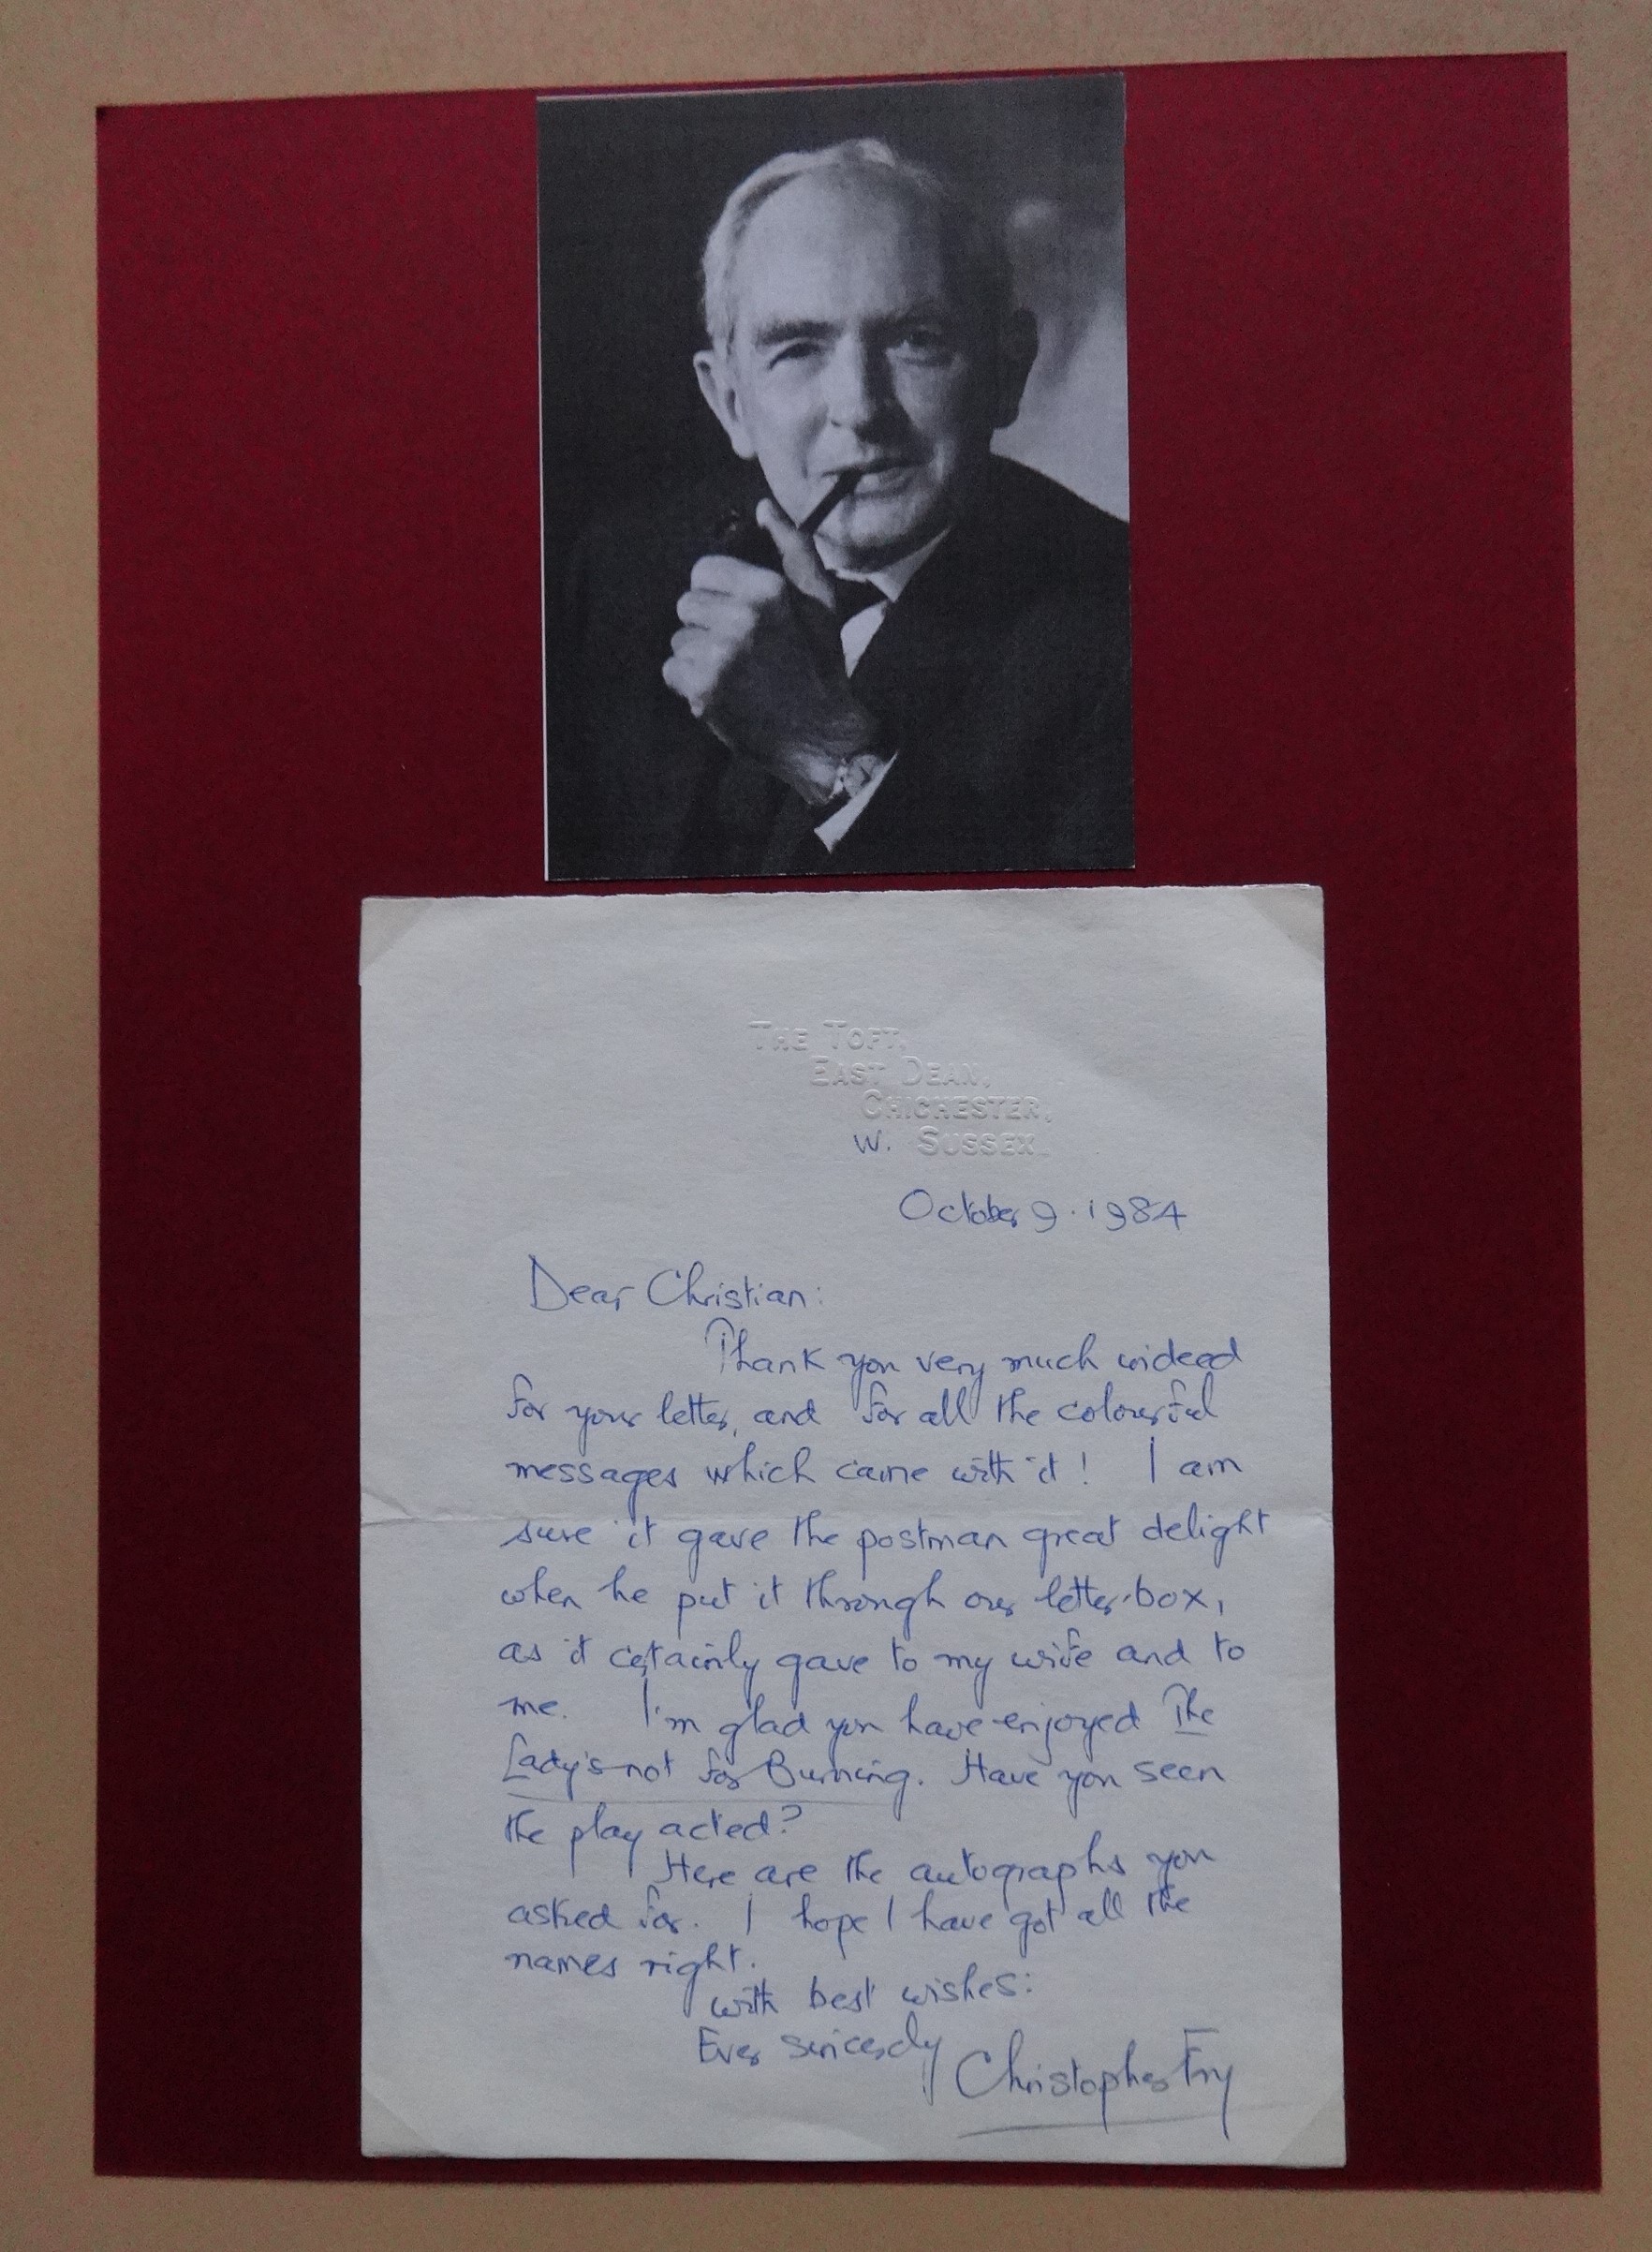 THE TOFT,
EAST DEAN,
CHICHESTER,
W. SUSSEX.
October 9. 1984
Dear Christian:
Thank you very much indeed
for your letter, and for all the colourful
messages which came with it! I am
sure it gave the postman great delight
when he put it through our letter-box,
as it certainly gave to my wife and to
me. I'm glad you have enjoyed The
Lady's not for Burning. Have you seen
the play acted?
Here are the autographs you
asked for. I hope I have got all the
names right.
With best wishes:
Ever sincerely
Christopher Fry